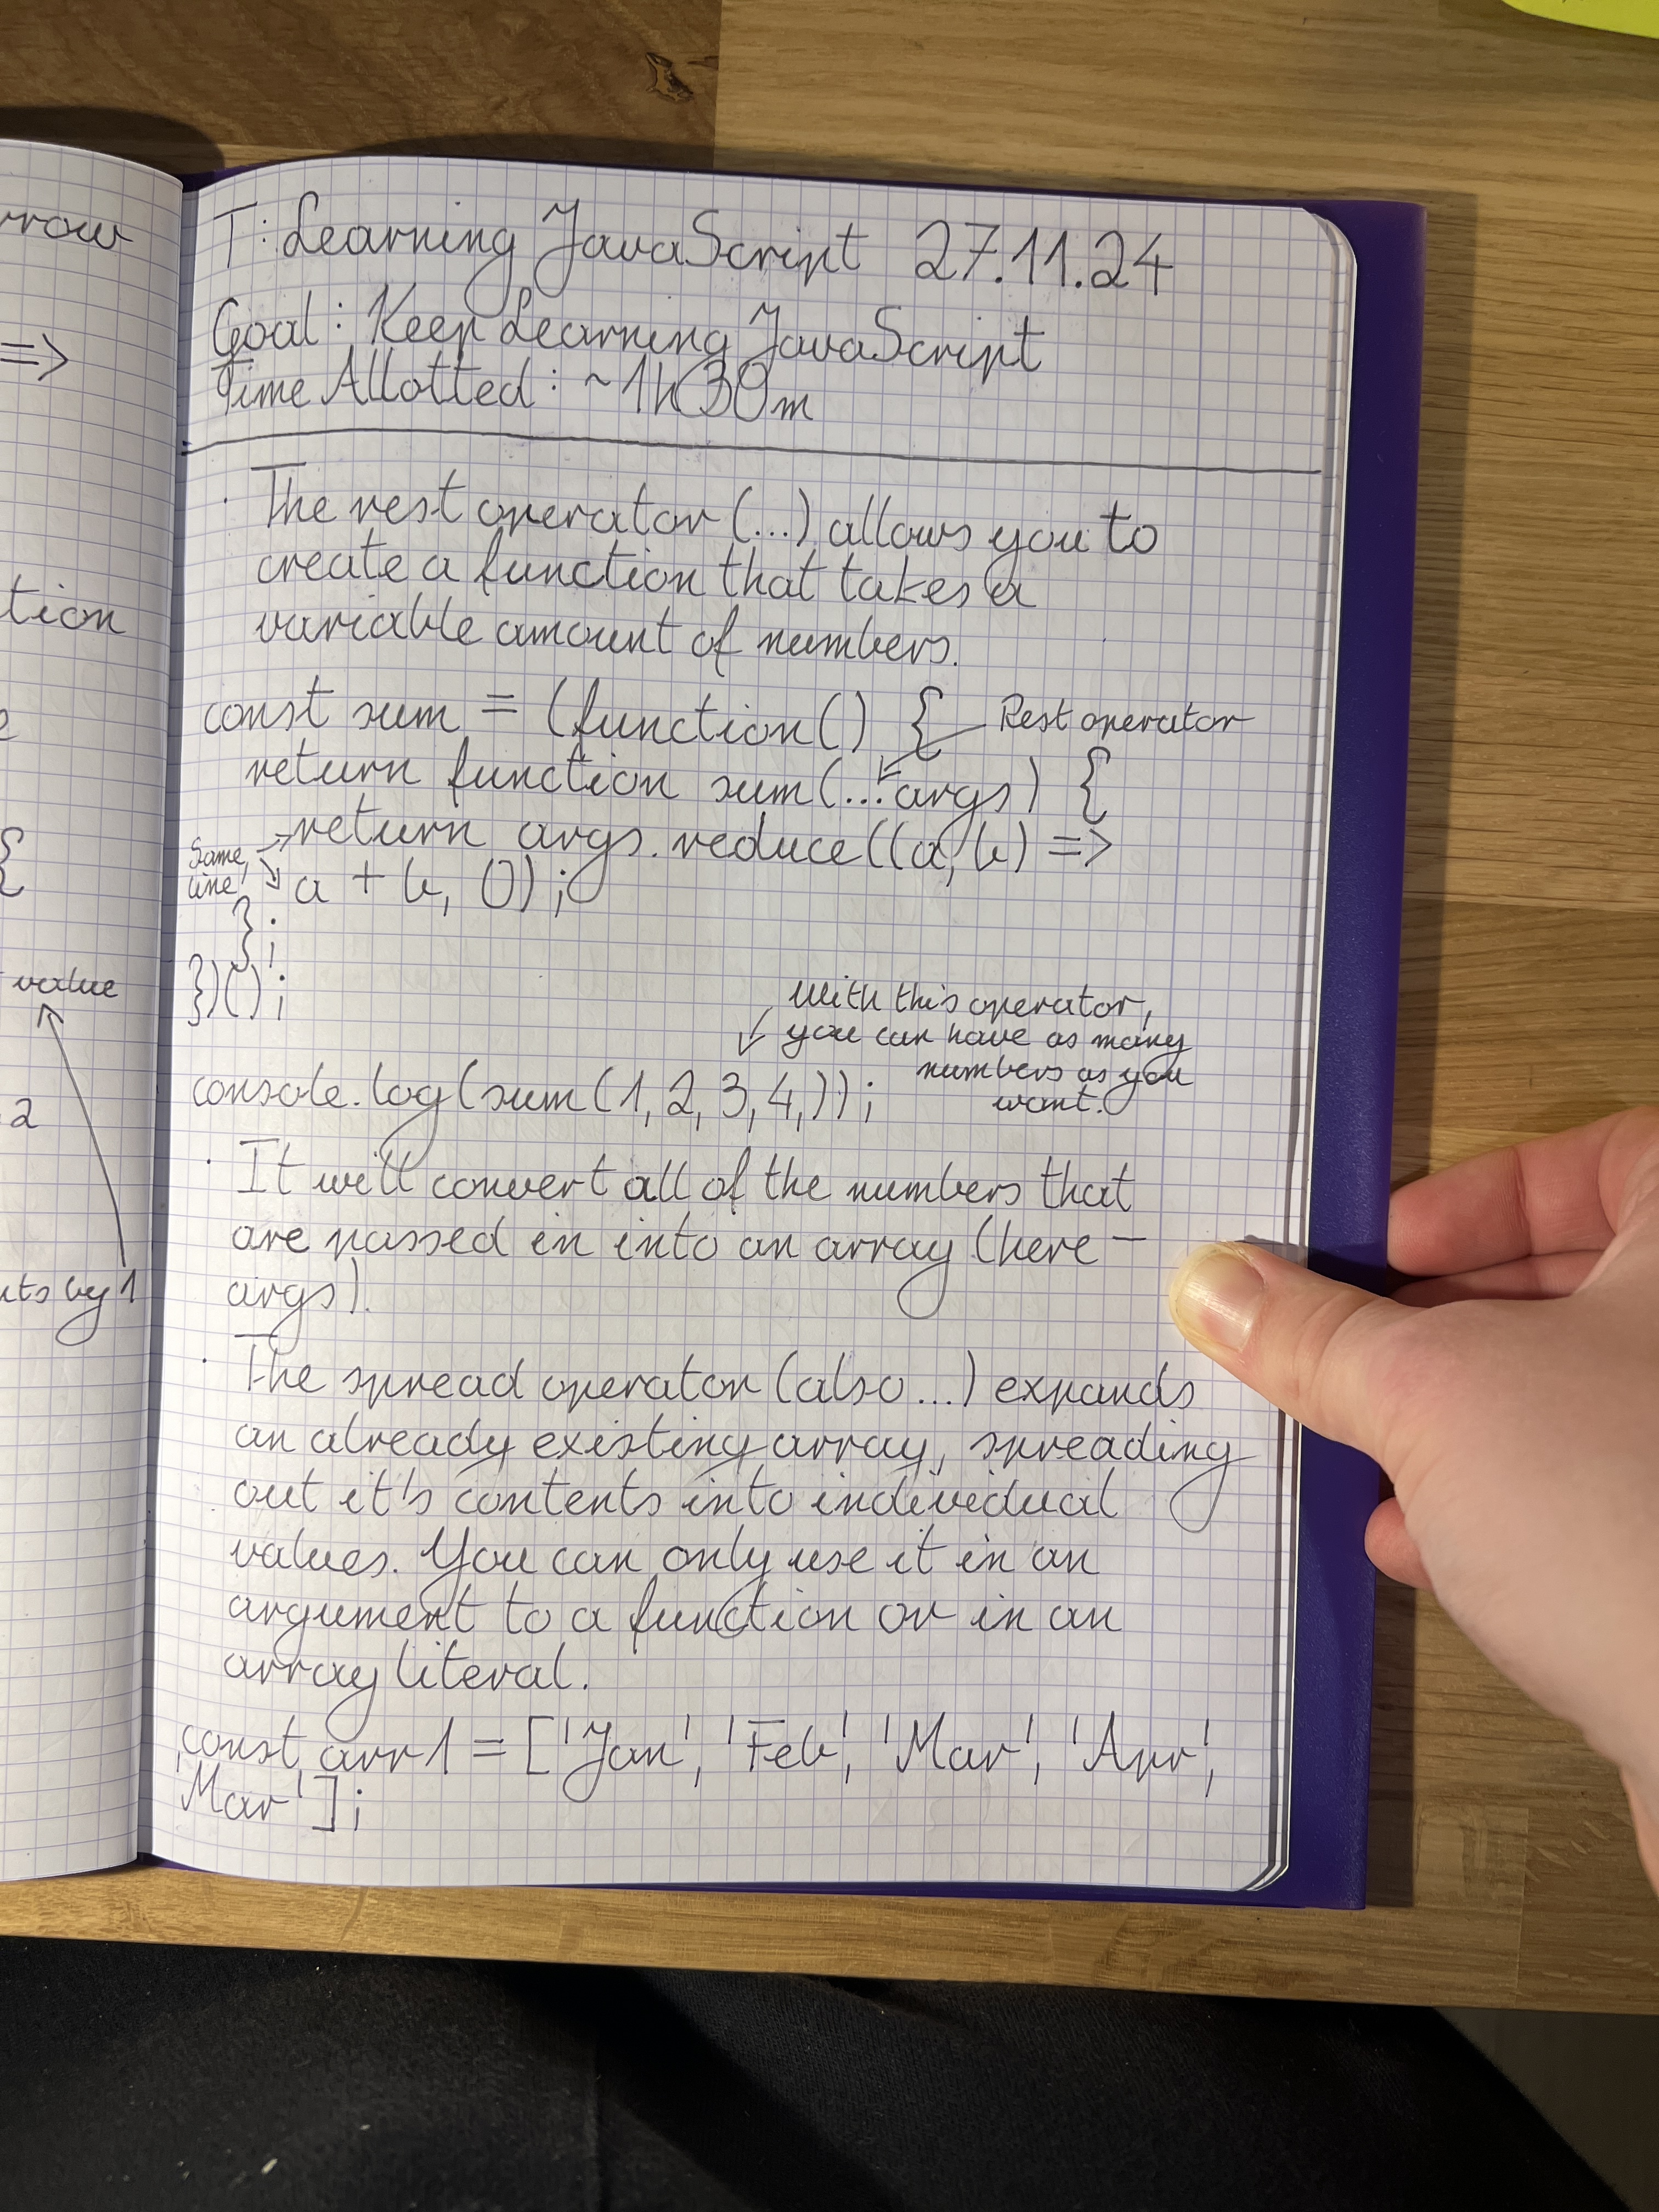 rrow
=>
tion
{
value
2
nts by 1
T: Learning JavaScript 27.11.24
Goal: Keep Learning JavaScript
Time Allotted: ~1h30m
· The rest operator (...) allows you to
create a function that takes a
variable amount of numbers.
const sum = (function() {
Rest operator
return function sum(...args) {
return args.reduce((a, b) =>
Same
line
a + b, 0);
};
})();
With this operator,
you can have as many
numbers as you
want.
console.log(sum(1, 2, 3, 4,));
· It will convert all of the numbers that
are passed in into an array (here –
args).
· The spread operator (also ...) expands
an already existing array, spreading
out it's contents into individual
values. You can only use it in an
argument to a function or in an
array literal.
const arr1 = ['Jan', 'Feb', 'Mar', 'Apr',
'Mar'];